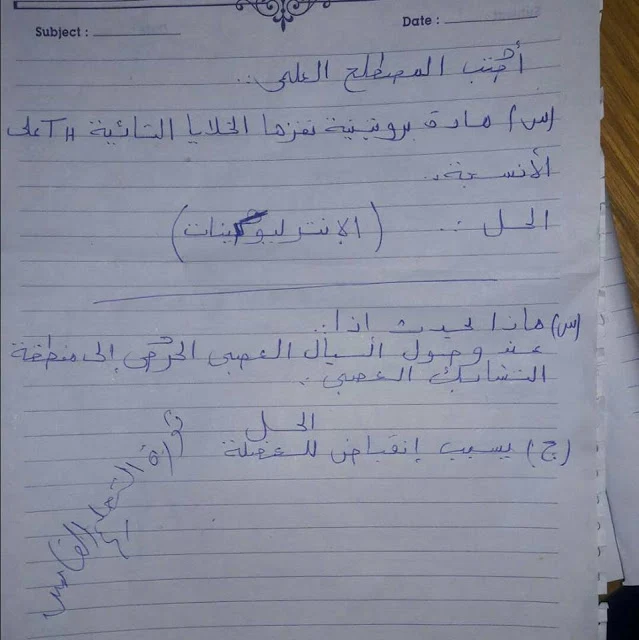 Subject :
Date :
أكتب المصطلح العلمى ..
(س) مادة بروتينية تفرزها الخلايا التائية TH على
الأنسجة ..
الحل .. (الإنترليوكينات)
(س) ماذا يحدث إذا ..
عند وصول السيال العصبى الحركى إلى منطقة
التشابك العصبى ..
الحل
(ج) يسبب إنقباض للعضلة